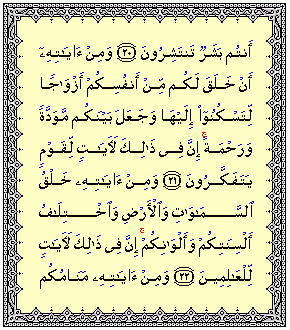 أَنتُم بَشَرٌ تَنتَشِرُونَ ﴿٢٠﴾ وَمِنْ ءَايَـٰتِهِۦٓ
أَنْ خَلَقَ لَكُم مِّنْ أَنفُسِكُمْ أَزْوَٰجًا
لِّتَسْكُنُوٓا۟ إِلَيْهَا وَجَعَلَ بَيْنَكُم مَّوَدَّةً
وَرَحْمَةً ۚ إِنَّ فِى ذَٰلِكَ لَـَٔايَـٰتٍ لِّقَوْمٍ
يَتَفَكَّرُونَ ﴿٢١﴾ وَمِنْ ءَايَـٰتِهِۦ خَلْقُ
ٱلسَّمَـٰوَٰتِ وَٱلْأَرْضِ وَٱخْتِلَـٰفُ
أَلْسِنَتِكُمْ وَأَلْوَٰنِكُمْ ۚ إِنَّ فِى ذَٰلِكَ لَـَٔايَـٰتٍ
لِّلْعَـٰلِمِينَ ﴿٢٢﴾ وَمِنْ ءَايَـٰتِهِۦ مَنَامُكُم